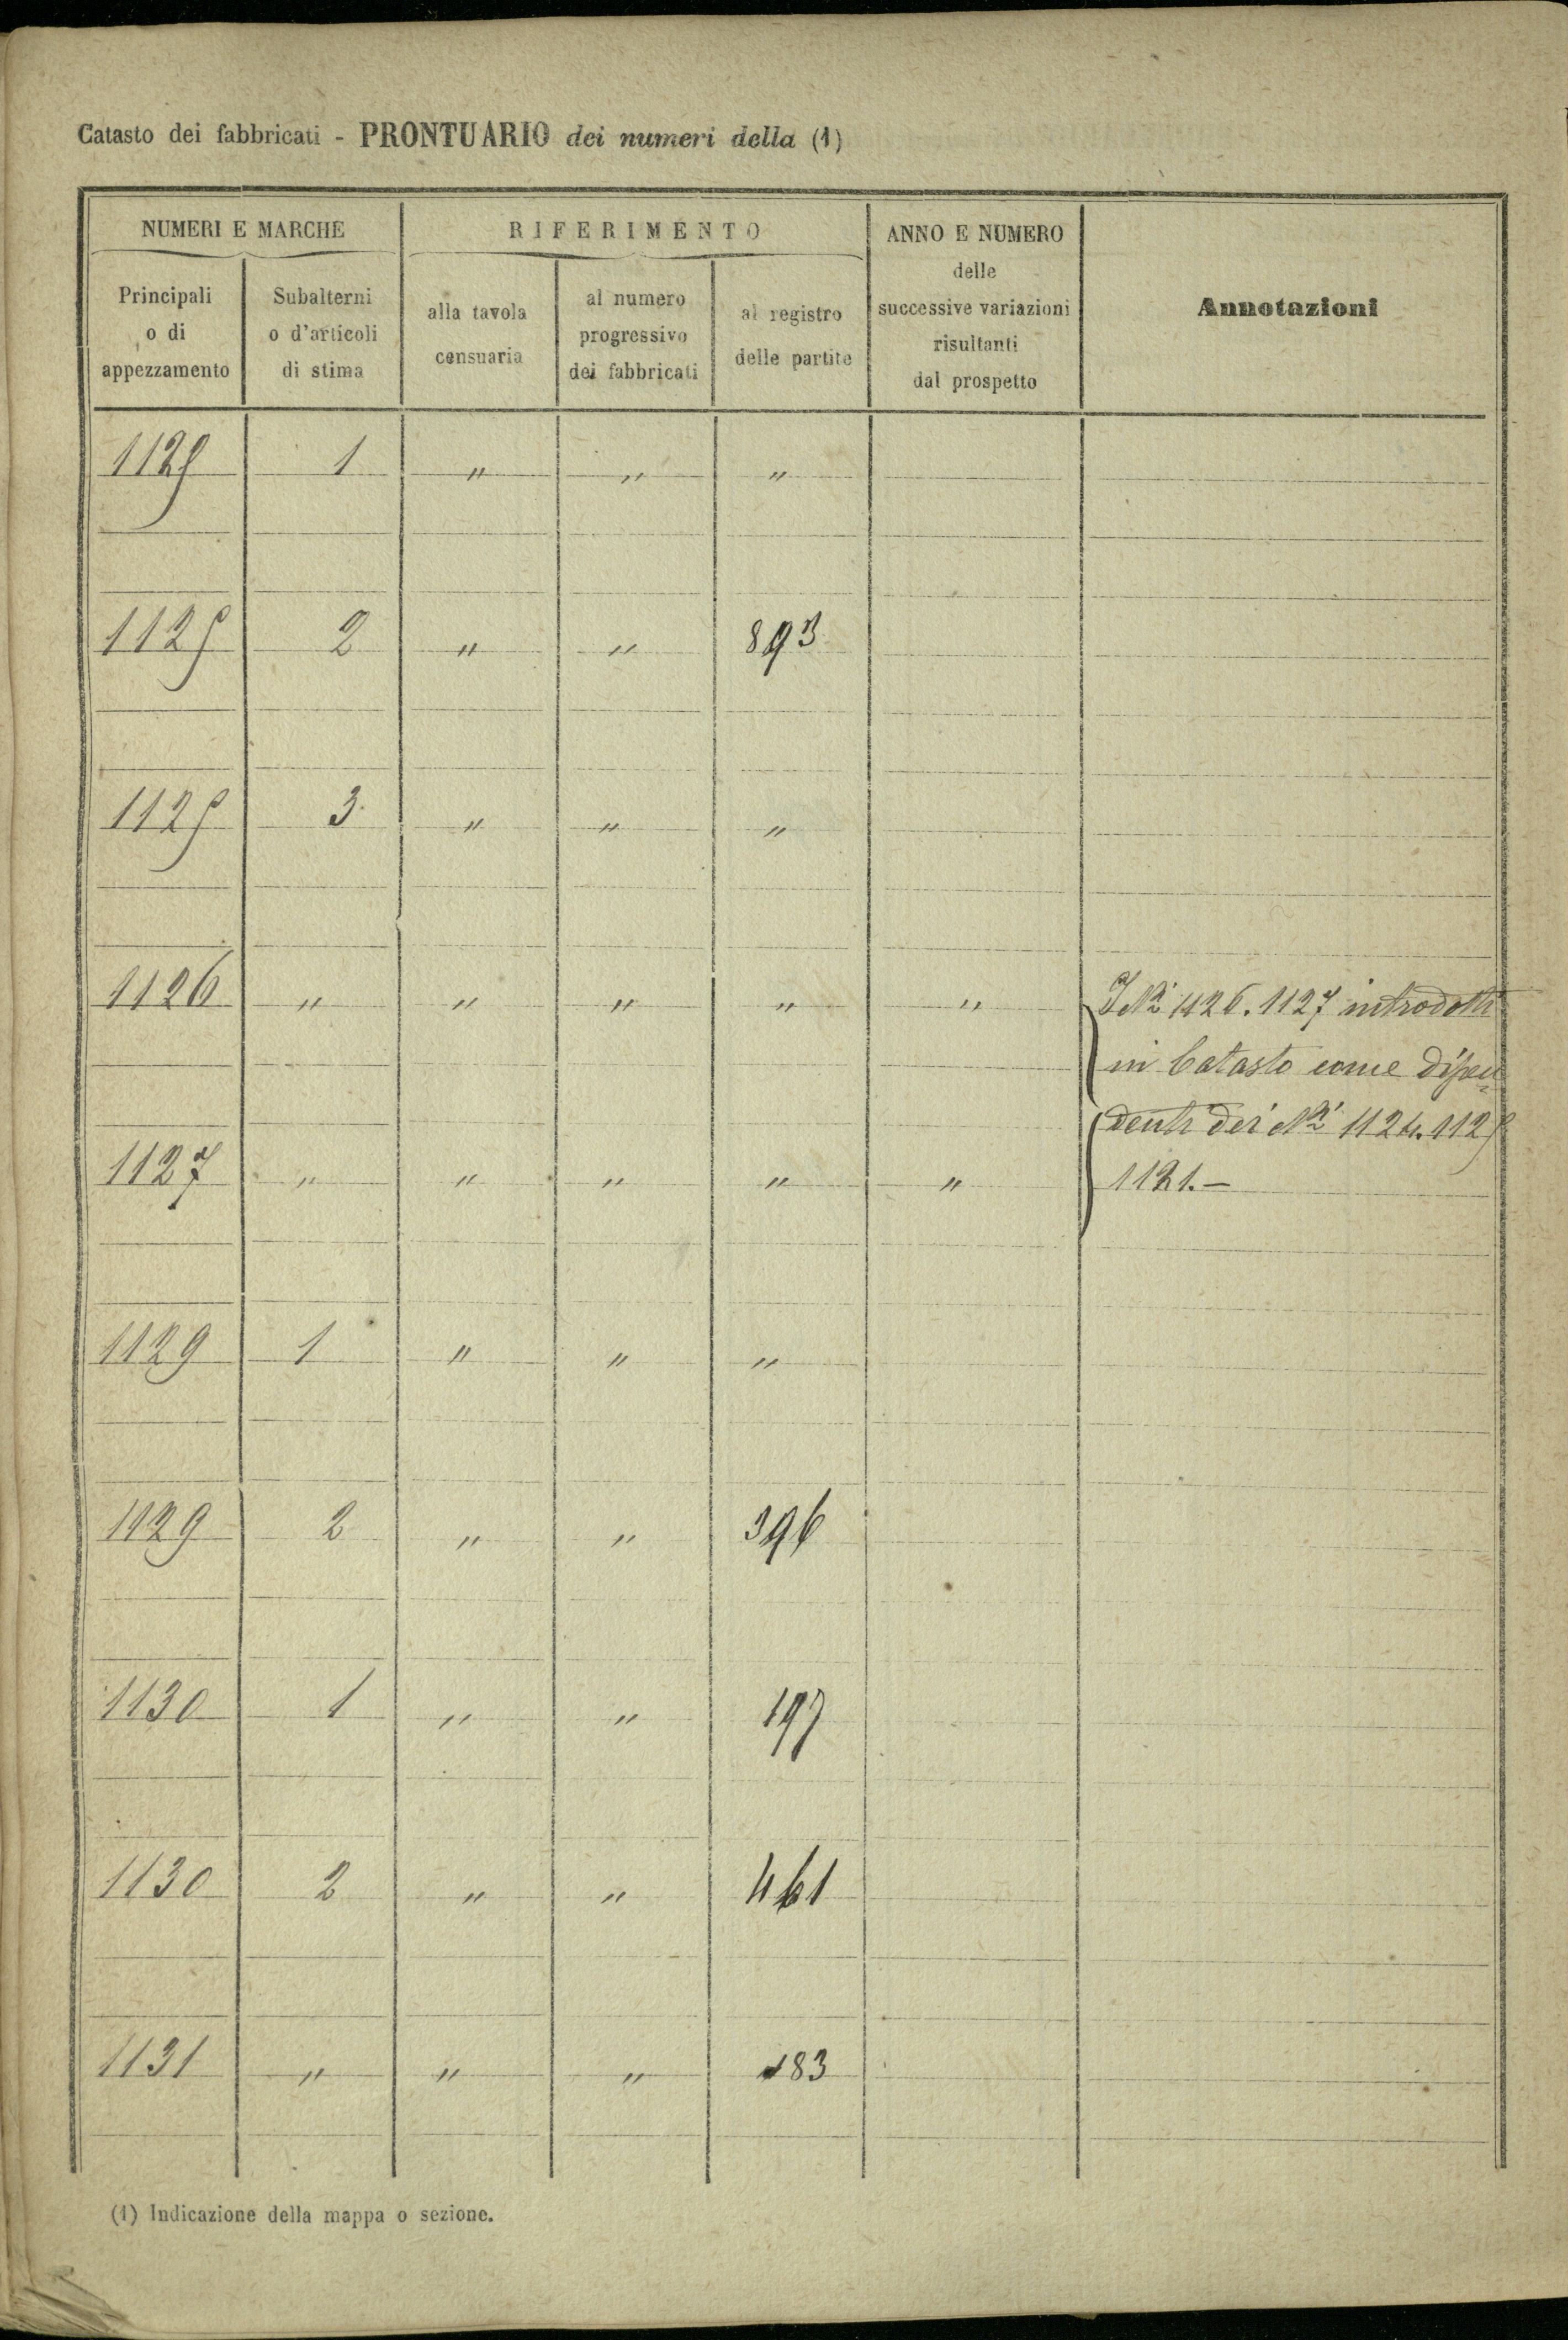 Catasto dei fabbricati - PRONTUARIO dei numeri della (1)
NUMERI E MARCHE
RIFERIMENTO
ANNO E NUMERO
delle
successive variazioni
risultanti
dal prospetto
Annotazioni
Principali
o di
appezzamento
Subalterni
o d'articoli
di stima
alla tavola
censuaria
al numero
progressivo
dei fabbricati
al registro
delle partite
1125 1 " " "
1125 2 " " 893
1125 3 " " "
1126 " " " " " I Ni 1126. 1127 introdotti
in Catasto come dipen
denti dei Ni 1124. 1125
1127 " " " " " 1121. —
1129 1 " " "
1129 2 " " 396
1130 1 " " 197
1130 2 " " 461
1131 " " " 183
(1) Indicazione della mappa o sezione.